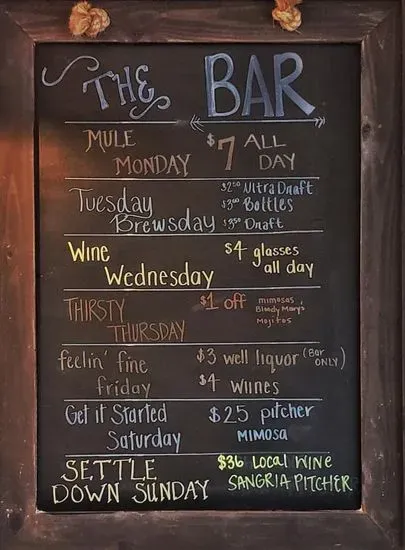 THE BAR
MULE MONDAY $7 ALL DAY
Tuesday Brewsday $2⁵⁰ Ultra Draft
$3⁰⁰ Bottles
$3⁵⁰ Draft
Wine Wednesday $4 glasses all day
THIRSTY THURSDAY $1 off mimosas
Bloody Mary's
Mojitos
feelin' fine friday $3 well liquor (Bar ONLY)
$4 wiines
Get it Started Saturday $25 pitcher
MIMOSA
SETTLE DOWN SUNDAY $36 LOCAL WINE
SANGRIA PITCHER